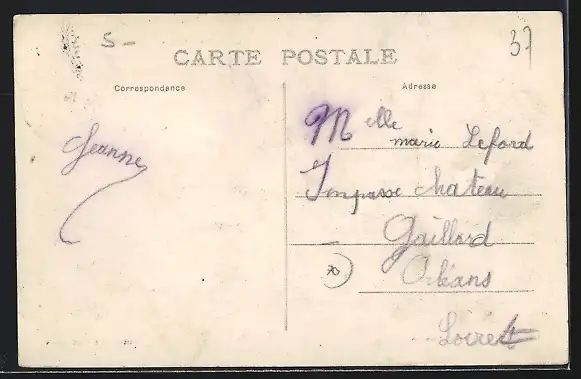 5 -
37
CARTE POSTALE
Correspondance
Adresse
Jeanne
Melle marie Leford
Impasse chateau
Gaillard
Orléans
Loiret